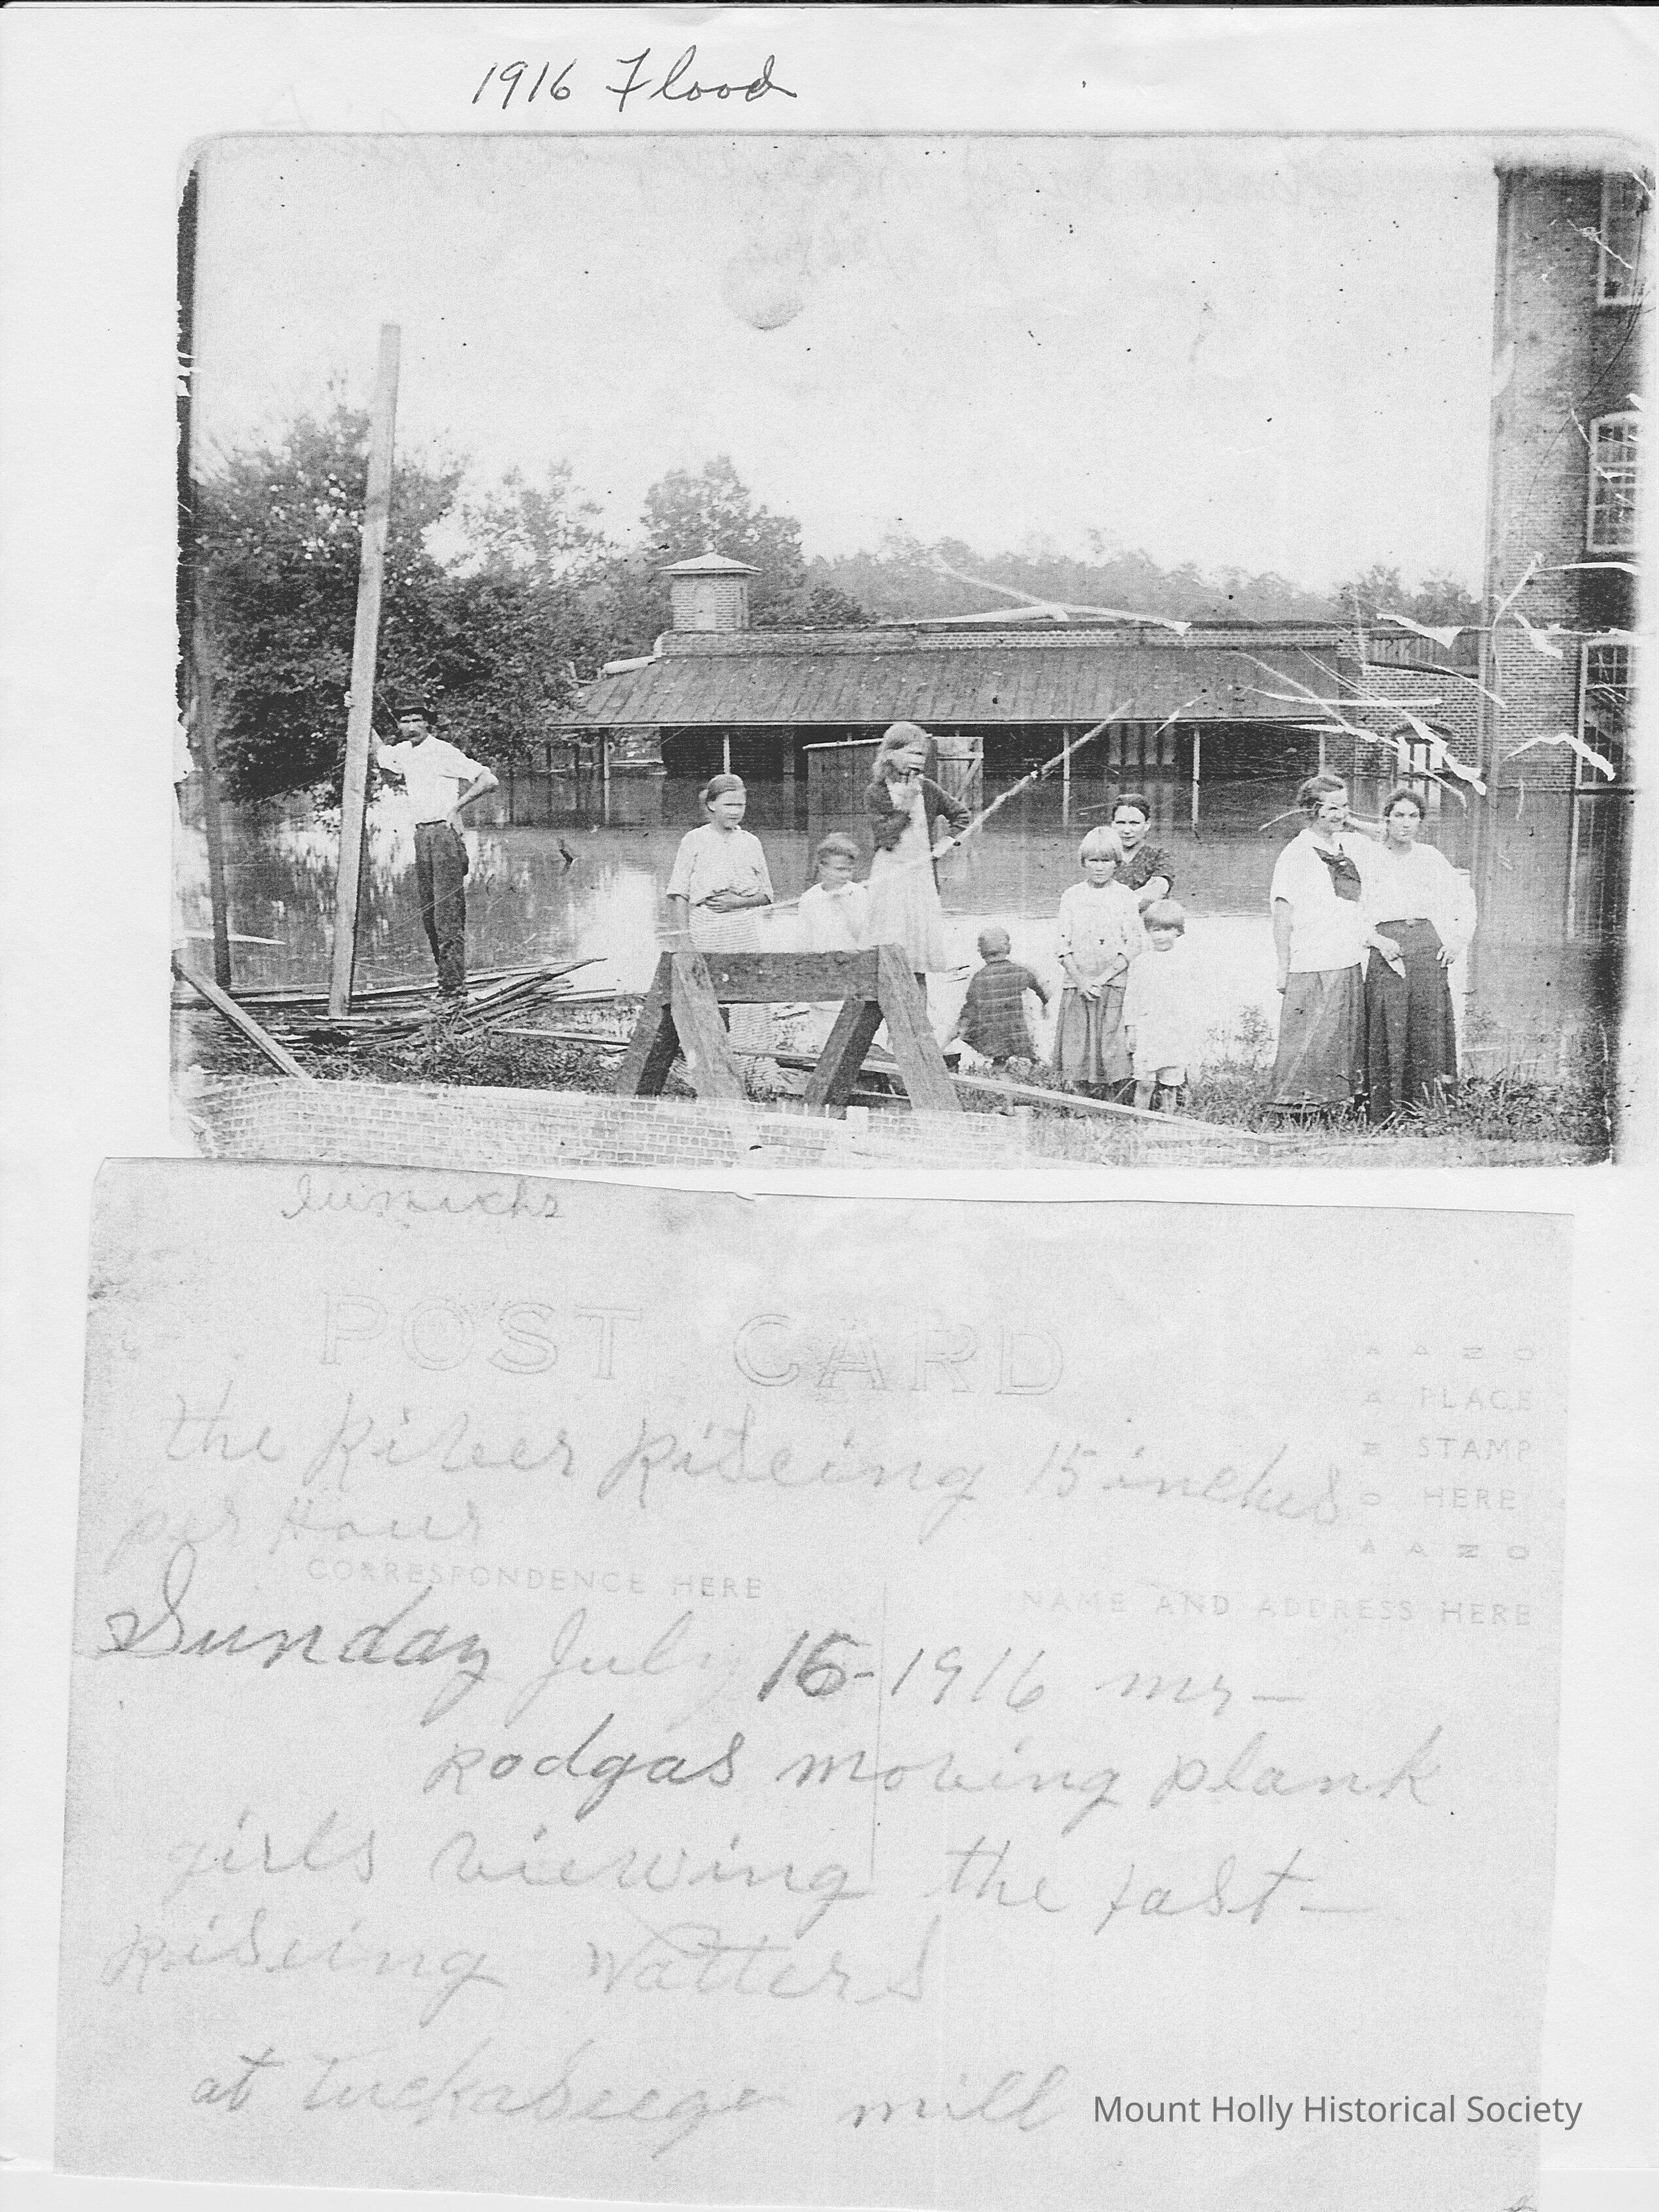 1916 Flood
POST CARD
A A Z O
A PLACE
Z STAMP
O HERE
A A Z O
the River Riseing 15 inches
per Hour
CORRESPONDENCE HERE
NAME AND ADDRESS HERE
Sunday July 16-1916 mr-
Rodgas moving plank
girls viewing the fast-
Riseing Watters
at Tuckaseege mill
Mount Holly Historical Society